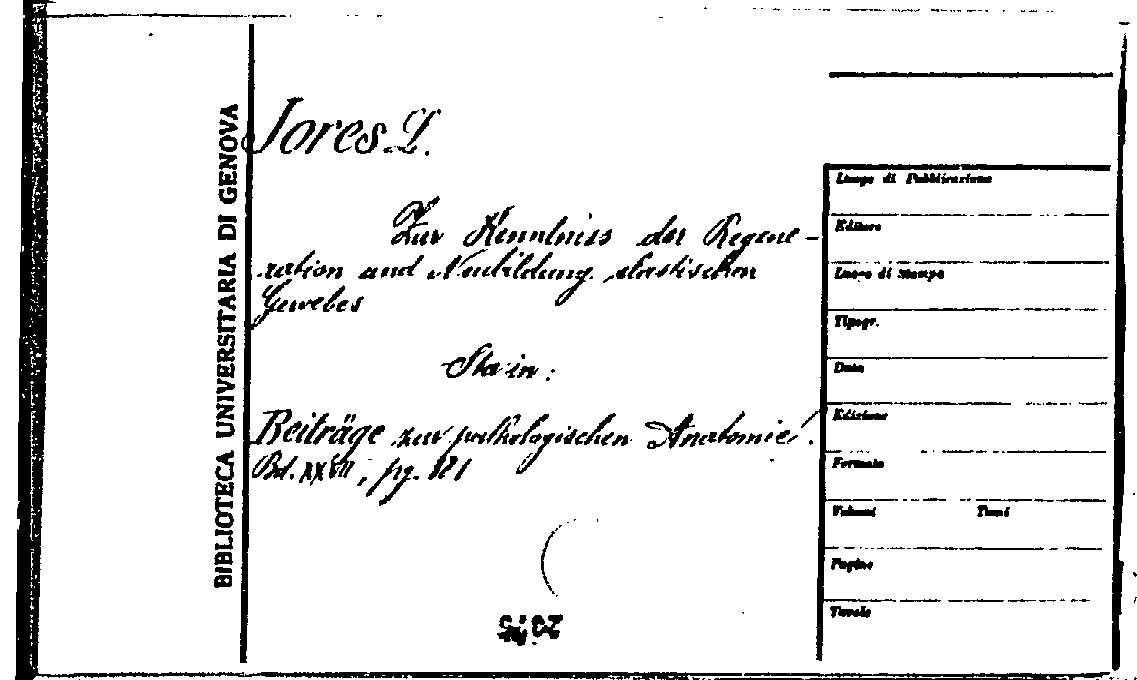 BIBLIOTECA UNIVERSITARIA DI GENOVA
Jores L.
Zur Kenntniss der Regene-
ration und Neubildung elastischen
Gewebes
Sta in:
Beiträge zur pathologischen Anatomie.
Bd. XXVII, pg. 181
Luogo di Pubblicazione
Editore
Luogo di Stampa
Tipogr.
Data
Edizione
Formato
Volumi Tomi
Pagine
Tavole